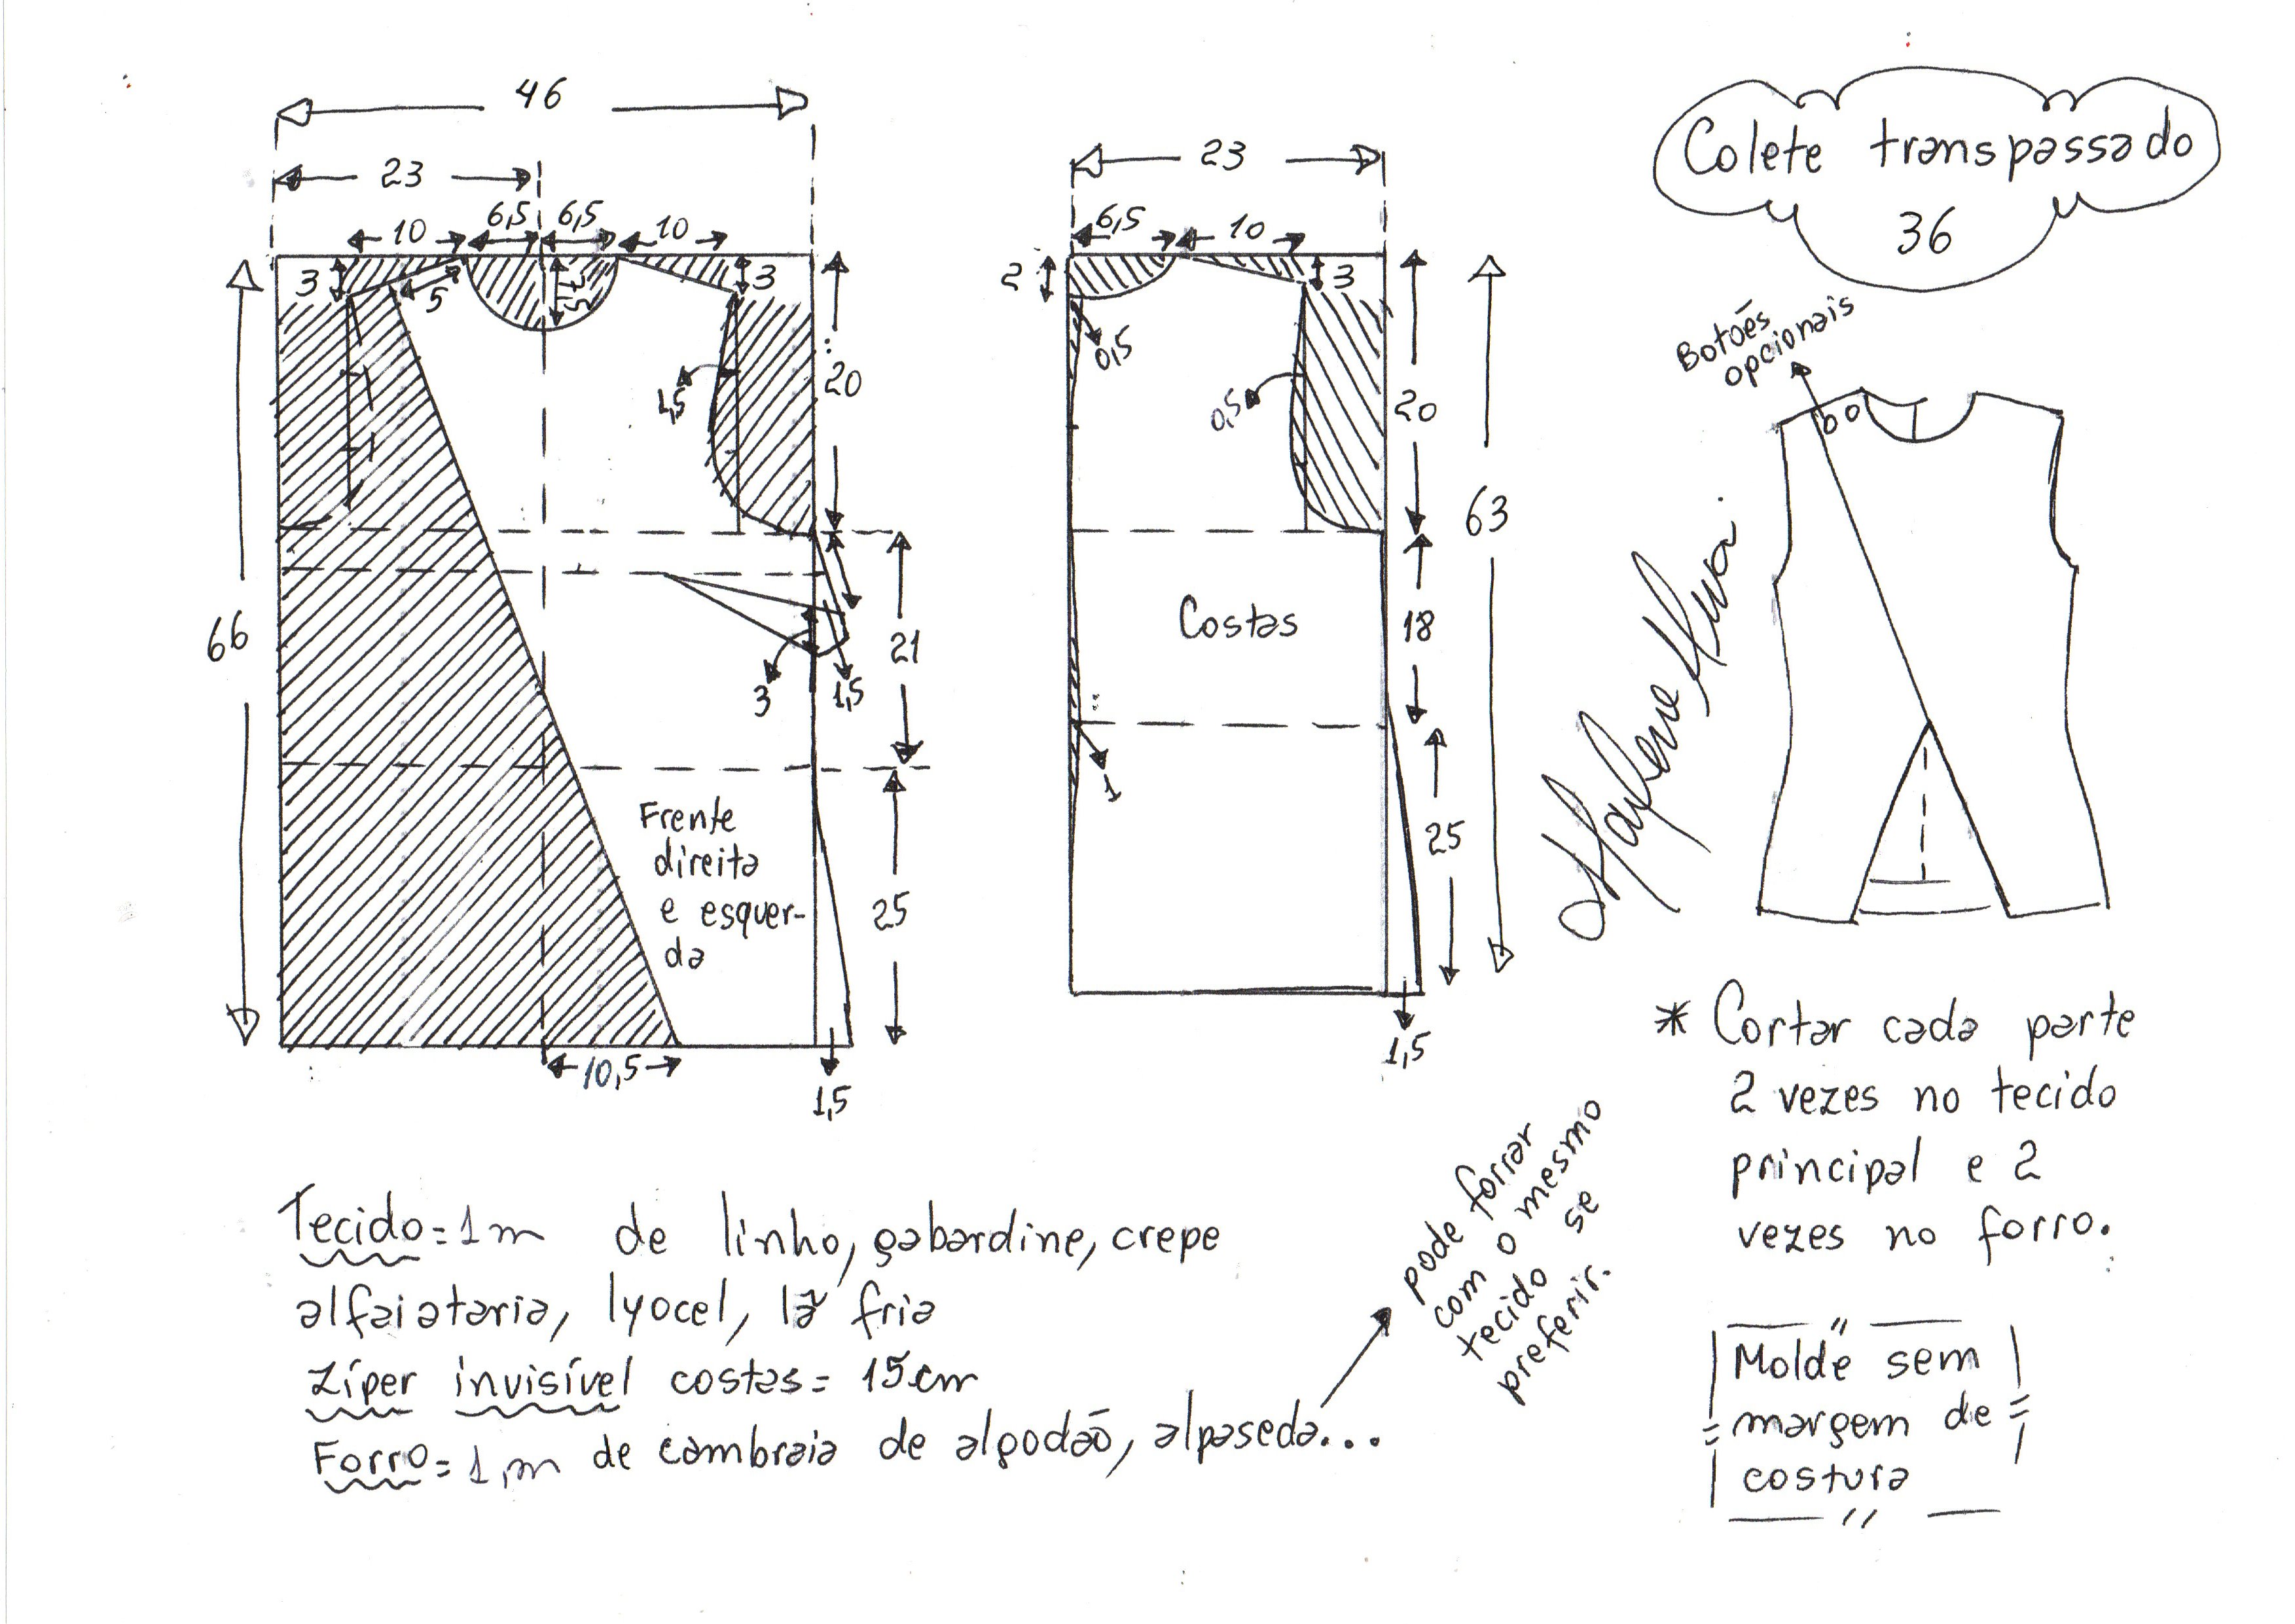 46
23
6,5
6,5
10
10
3
5
3
1,5
20
66
21
3
1,5
Frente
direita
e esquer-
da
25
10,5
1,5
23
6,5
10
2
3
0,5
0,5
20
63
Costas
18
1
25
1,5
Colete transpassado
36
Botões
opcionais
* Cortar cada parte
2 vezes no tecido
principal e 2
vezes no forro.
Molde sem
margem de
costura
Tecido = 1 m de linho, gabardine, crepe
alfaiataria, lyocel, lã fria
Zíper invisível costas = 15 cm
Forro = 1 m de cambraia de algodão, alpaseda...
pode forrar
com o mesmo
tecido se
preferir.